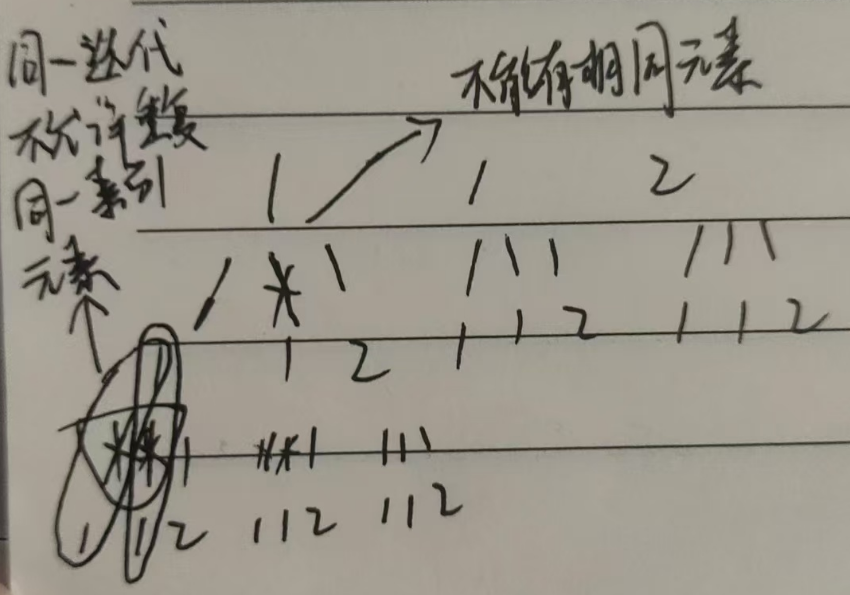 同一迭代
不允许重复
同一索引
元素
不能有相同元素
1 1 2
1 2 1 1 2 1 1 2
1 1 2 1 1 2 1 1 2